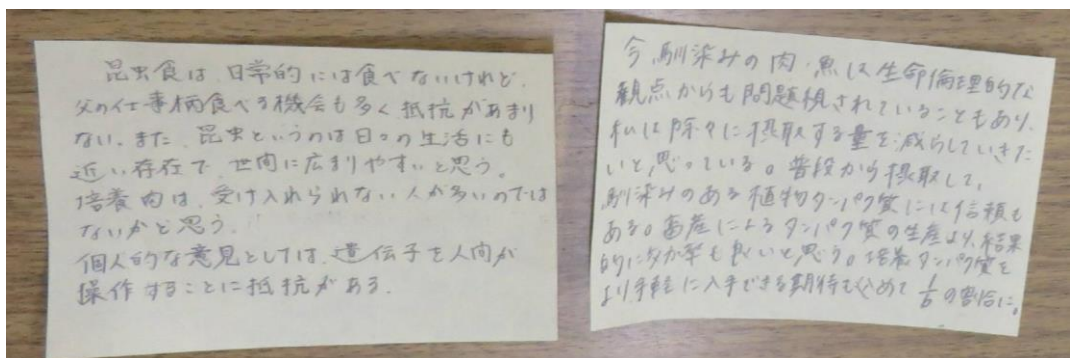 昆虫食は、日常的には食べないけれど、
父の仕事柄食べる機会も多く抵抗があまり
ない。また、昆虫というのは日々の生活にも
近い存在で、世間に広まりやすいと思う。
培養肉は、受け入れられない人が多いのでは
ないかと思う。
個人的な意見としては、遺伝子を人間が
操作することに抵抗がある。
今、馴染みの肉、魚は生命倫理的な
観点からも問題視されていることもあり、
私は除々に摂取する量を減らしていきた
いと思っている。普段から摂取して、
馴染みのある植物タンパク質には信頼も
ある。畜産によるタンパク質の生産より、結果
的に効率も良いと思う。培養タンパク質を
より手軽に入手できる期待も込めて 1/6 の割合に。